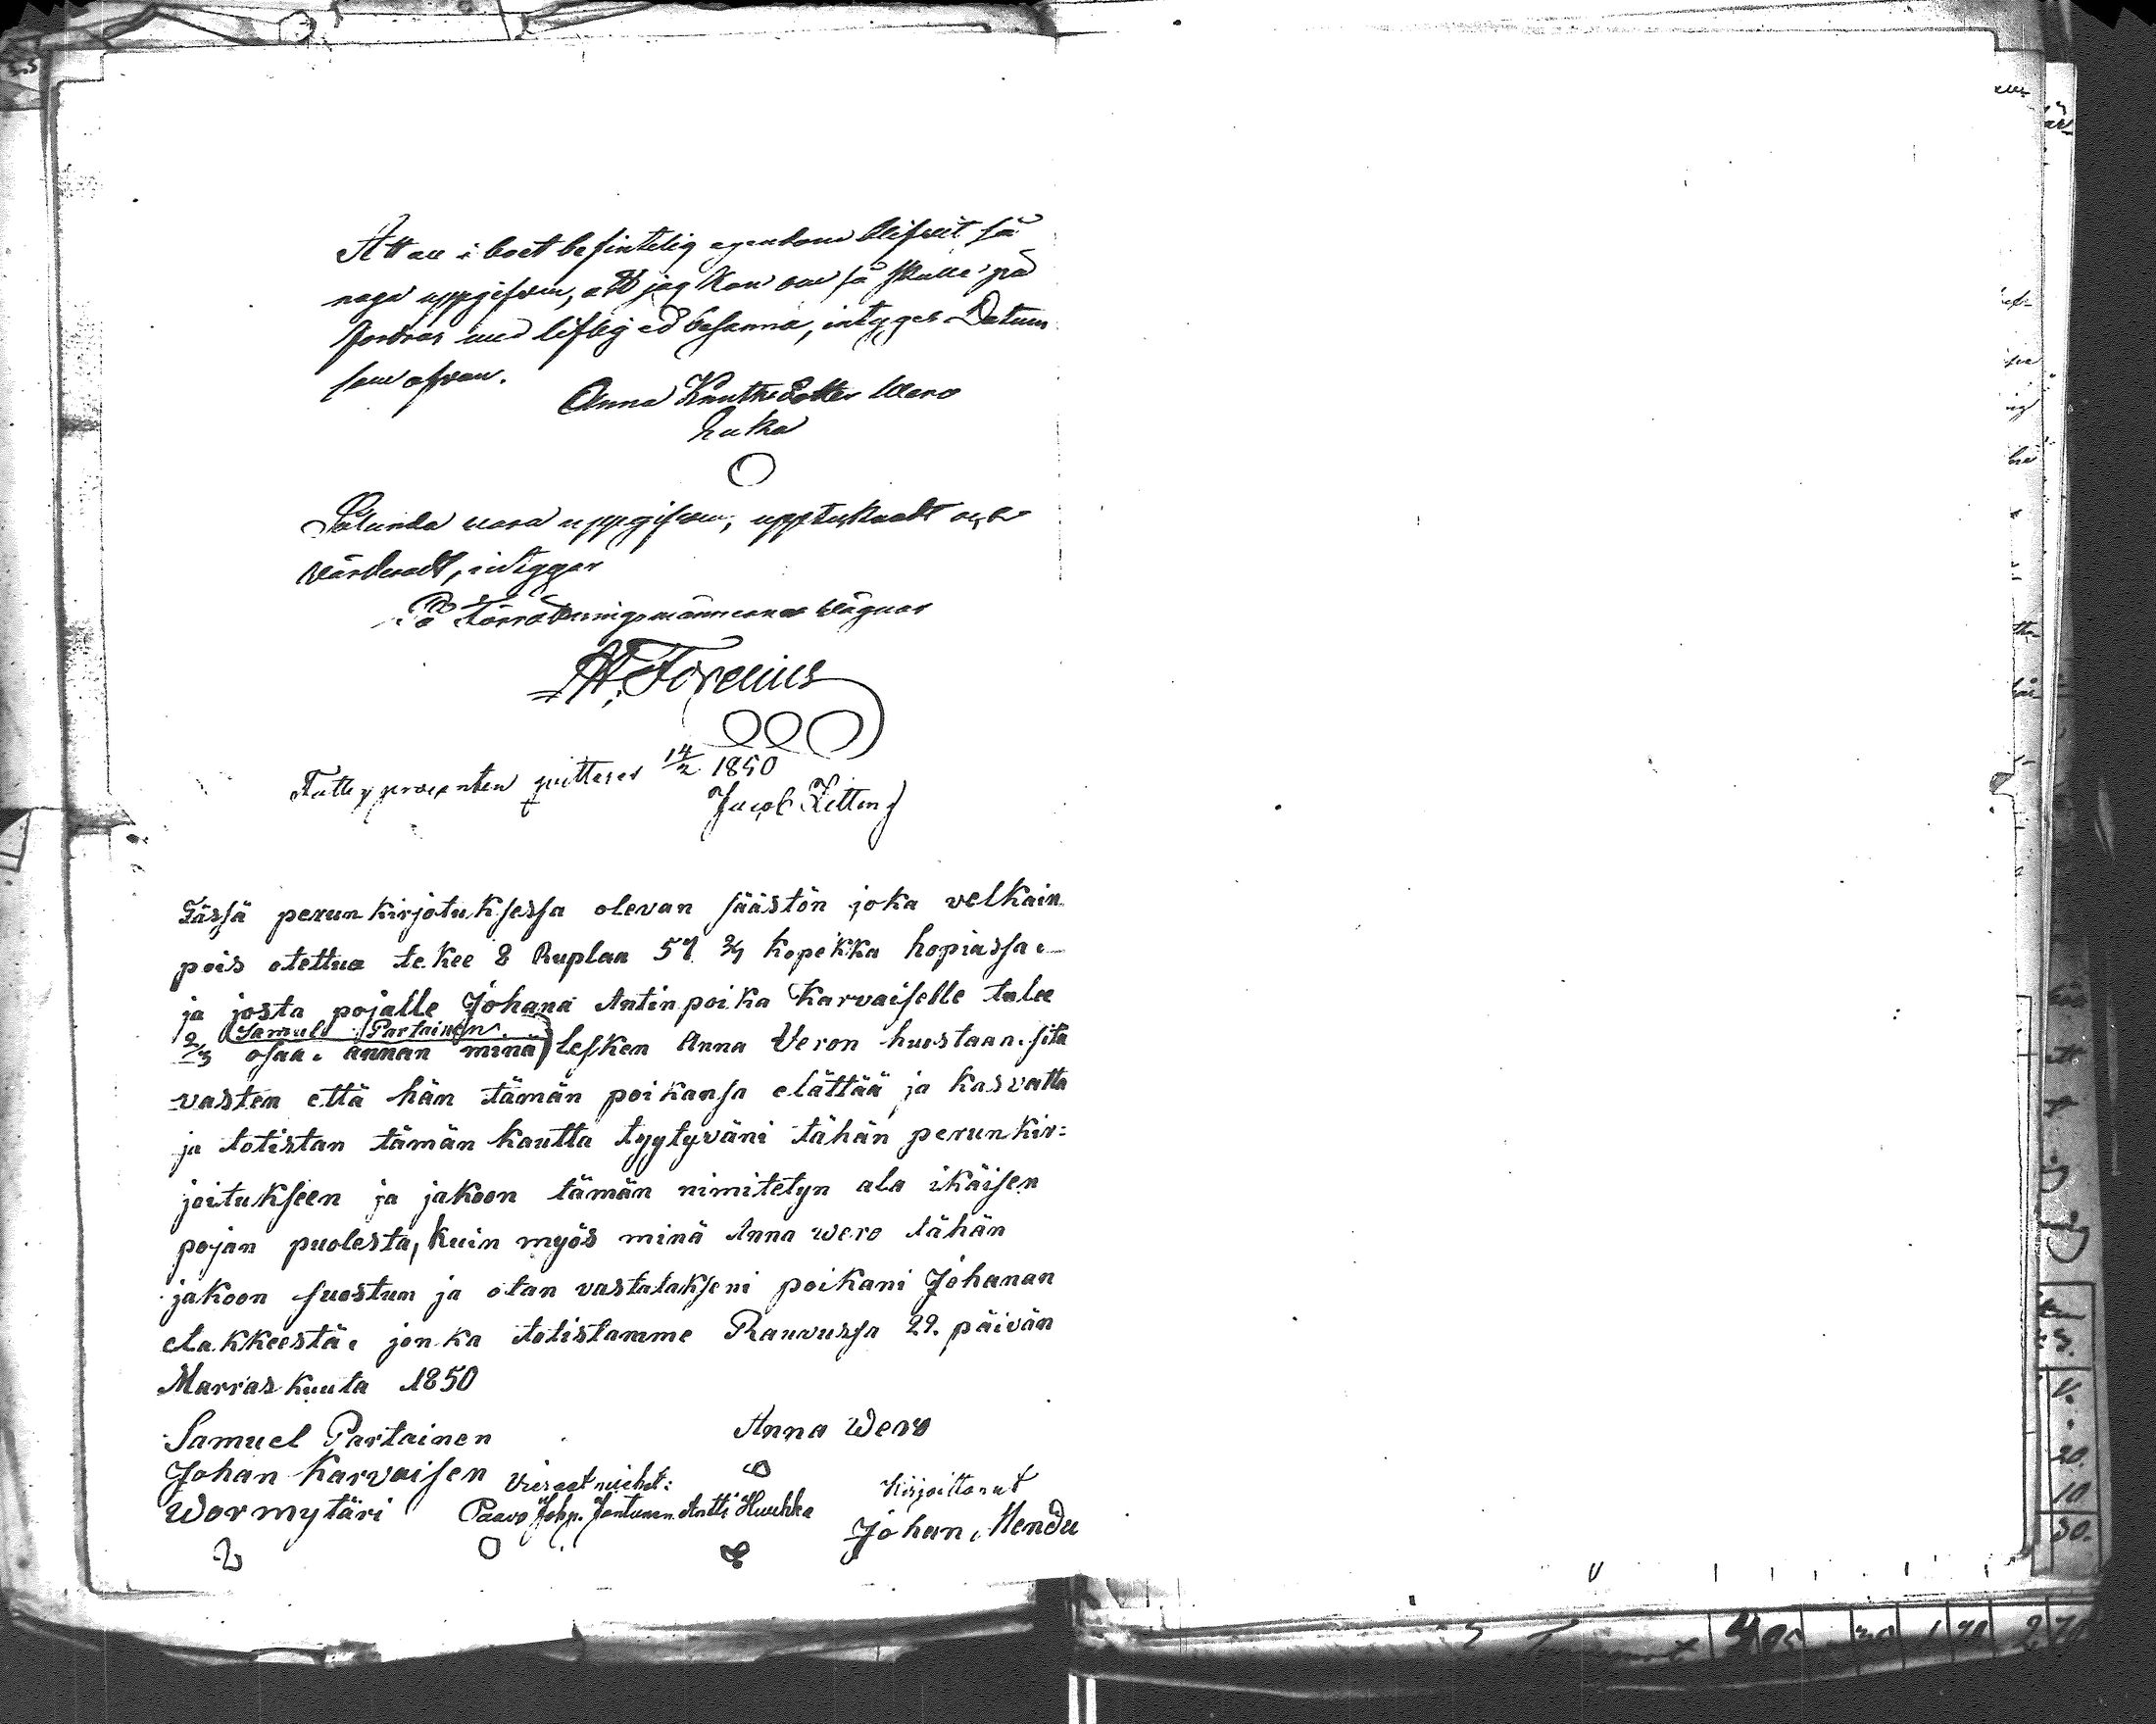 Att all i boet befintelig egendom blifvit så
noga uppgifven, att jag kan om så skulle på
fordras med liflig ed besanna, intygas Datum
som ofvan.
Anna Knuthsdotter Wero
Enka
Sålunda vara uppgifvne, upptecknadt och
värderadt, intygger
På Värderingsmännernas vägnar
Forenius
Fattigprocenten qvitteras 14/2 1850
Jacob Zitting
Tässä perunkirjotuksessa olevan säästön joka velkain
pois otettua tekee 8 Ruplaa 57 3/4 kopekka hopiassa.
ja josta pojalle Johana Antinpoika Karvaiselle tulee
Samuel Partainen
2/3 osaa. annan minä lesken Anna Veron huostaan. sitä
vasten että hän tämän poikansa elättää ja kasvatta
ja totistan tämän kautta tyytyväni tähän perunkir=
joitukseen ja jakoon tämän nimitetyn ala ikäisen
pojan puolesta, kuin myös minä Anna Wero tähän
jakoon suostun ja otan vastatakseni poikani Johanan
elakkeestä. jonka totistamme Rauvussa 29. päivän
Marraskuuta 1850
Samuel Partainen
Anna Wero
Johan Karvaisen
Vieraat miehet:
Kirjoittanut
Wormytäri
Paavo Johp. Jantunen Antti Huuhka
Johan Mendu